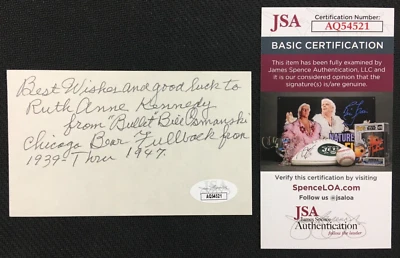 Best Wishes and good luck to
Ruth Anne Kennedy
from "Bullet Bill Osmanski"
Chicago Bear Fullback from
1939 Thru 1947.
JSA
AQ54521
JSA
Certification Number:
AQ54521
BASIC CERTIFICATION
This item has been fully examined by
James Spence Authentication, LLC and it
is our considered opinion that the
signature(s) is/are genuine.
NATURE
Verify this certification by visiting
SpenceLOA.com
Follow us @jsaloa
JSA
James Spence
Authentication
follow the leader